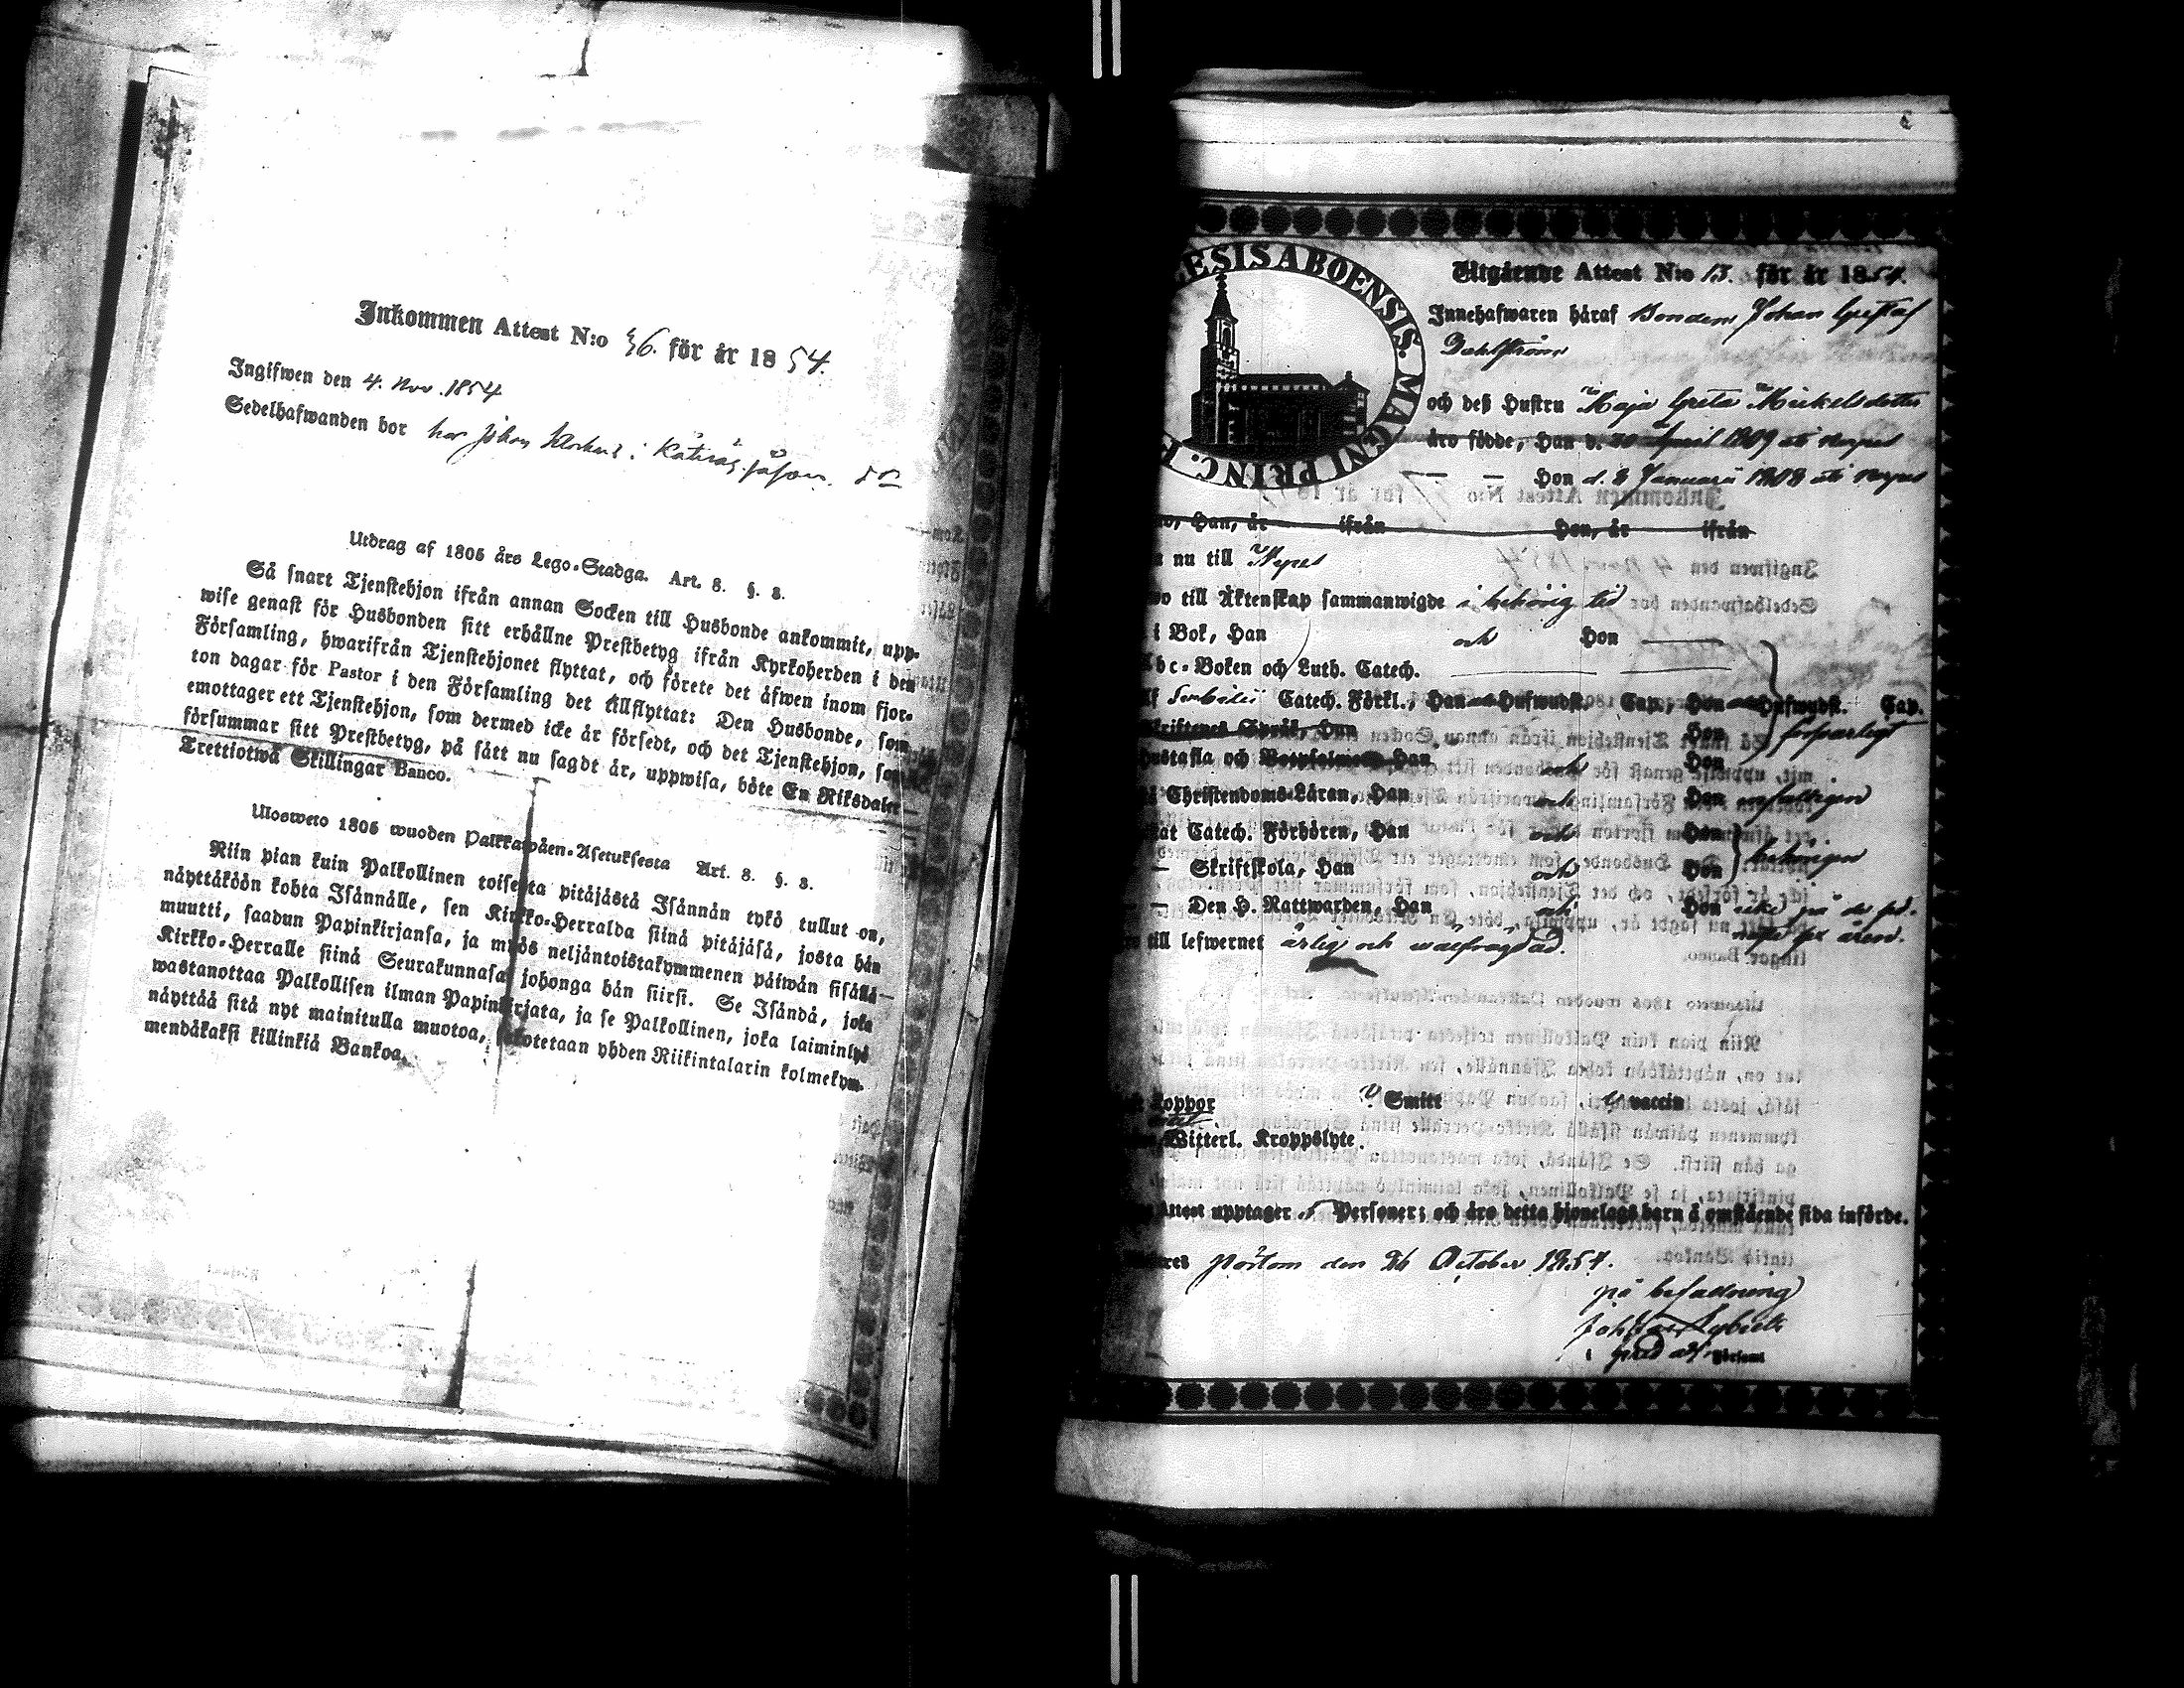 Inkommen Attest N:o 36. för år 1854.
Ingifwen den 4. Nov. 1854
Sedelhafwanden bor hos Johan
Utdrag af 1805 års Lego-Stadga. Art. 8. §. 3.
Så snart Tjenstehjon ifrån annan Socken till Husbonde ankommit, upp-
wise genast för Husbonden sitt erhållne Prestbetyg ifrån Kyrkoherden i den
Församling, hwarifrån Tjenstehjonet flyttat, och förete det äfwen inom fjor-
ton dagar för Pastor i den Församling det tillflyttat: Den Husbonde, som
emottager ett Tjenstehjon, som dermed icke är försedt, och det Tjenstehjon, som
försummar sitt Prestbetyg, på sätt nu sagdt är, uppwisa, böte En Riksdaler
Trettiotwå Skillingar Banco.
Ulosweto 1805 wuoden Palkkawäen-Asetuksesta Art. 8. §. 3.
Niin pian kuin Palkollinen toisesta pitäjästä Isännän tykö tullut on,
näyttäköön kohta Isännälle, sen Kirkko-Herralda siinä pitäjäsä, josta hän
muutti, saadun Papinkirjansa, ja myös neljäntoistakymmenen päiwän sisällä
Kirkko-Herralle siinä Seurakunnasa, johonga hän siirsi. Se Isändä, joka
wastanottaa Palkollisen ilman Papinkirjata, ja se Palkollinen, joka laiminlyö
näyttää sitä nyt mainitulla muotoa, sakotetaan yhden Riikintalarin kolmekym-
mendäkaksi killinkiä Bankoa.
ESIS ABOENSIS. MAGNI PRINC.
Utgående Attest N:o 13. för år 1854.
Innehafwaren häraf Bonden Johan Gustaf
Dahlström
och deß Hustru Maja Greta Mickelsdotter
äro födde, Han d. 30 April 1809 uti Nerpes
Hon d. 8 Januarii 1808 uti Nerpes
Han, år ifrån Hon, år ifrån
nu till Nerpes
till Äktenskap sammanwigde i behörig tid
i Bok, Han och Hon
Abc-Boken och Luth. Catech.
Catech. Förkl., Han Hufwudst. Cap., Hon Hufwudst. Cap.
Skriftenes Språk, Han Hon försvarligt
Hustafla och Han och Hon
Christendoms-Läran, Han och Hon
Catech. Förhören, Han och Hon
Skriftskola, Han och Hon
Den H. Nattwarden, Han och Hon icke på de
till lefwernet ärlig och
Koppor Smitt vaccin
Witterl. Kroppslyte.
Attest upptager 5 Personer; och äro detta hjonelags barn å omstående sida införde.
Pörtom den 26 October 1854.
på befallning